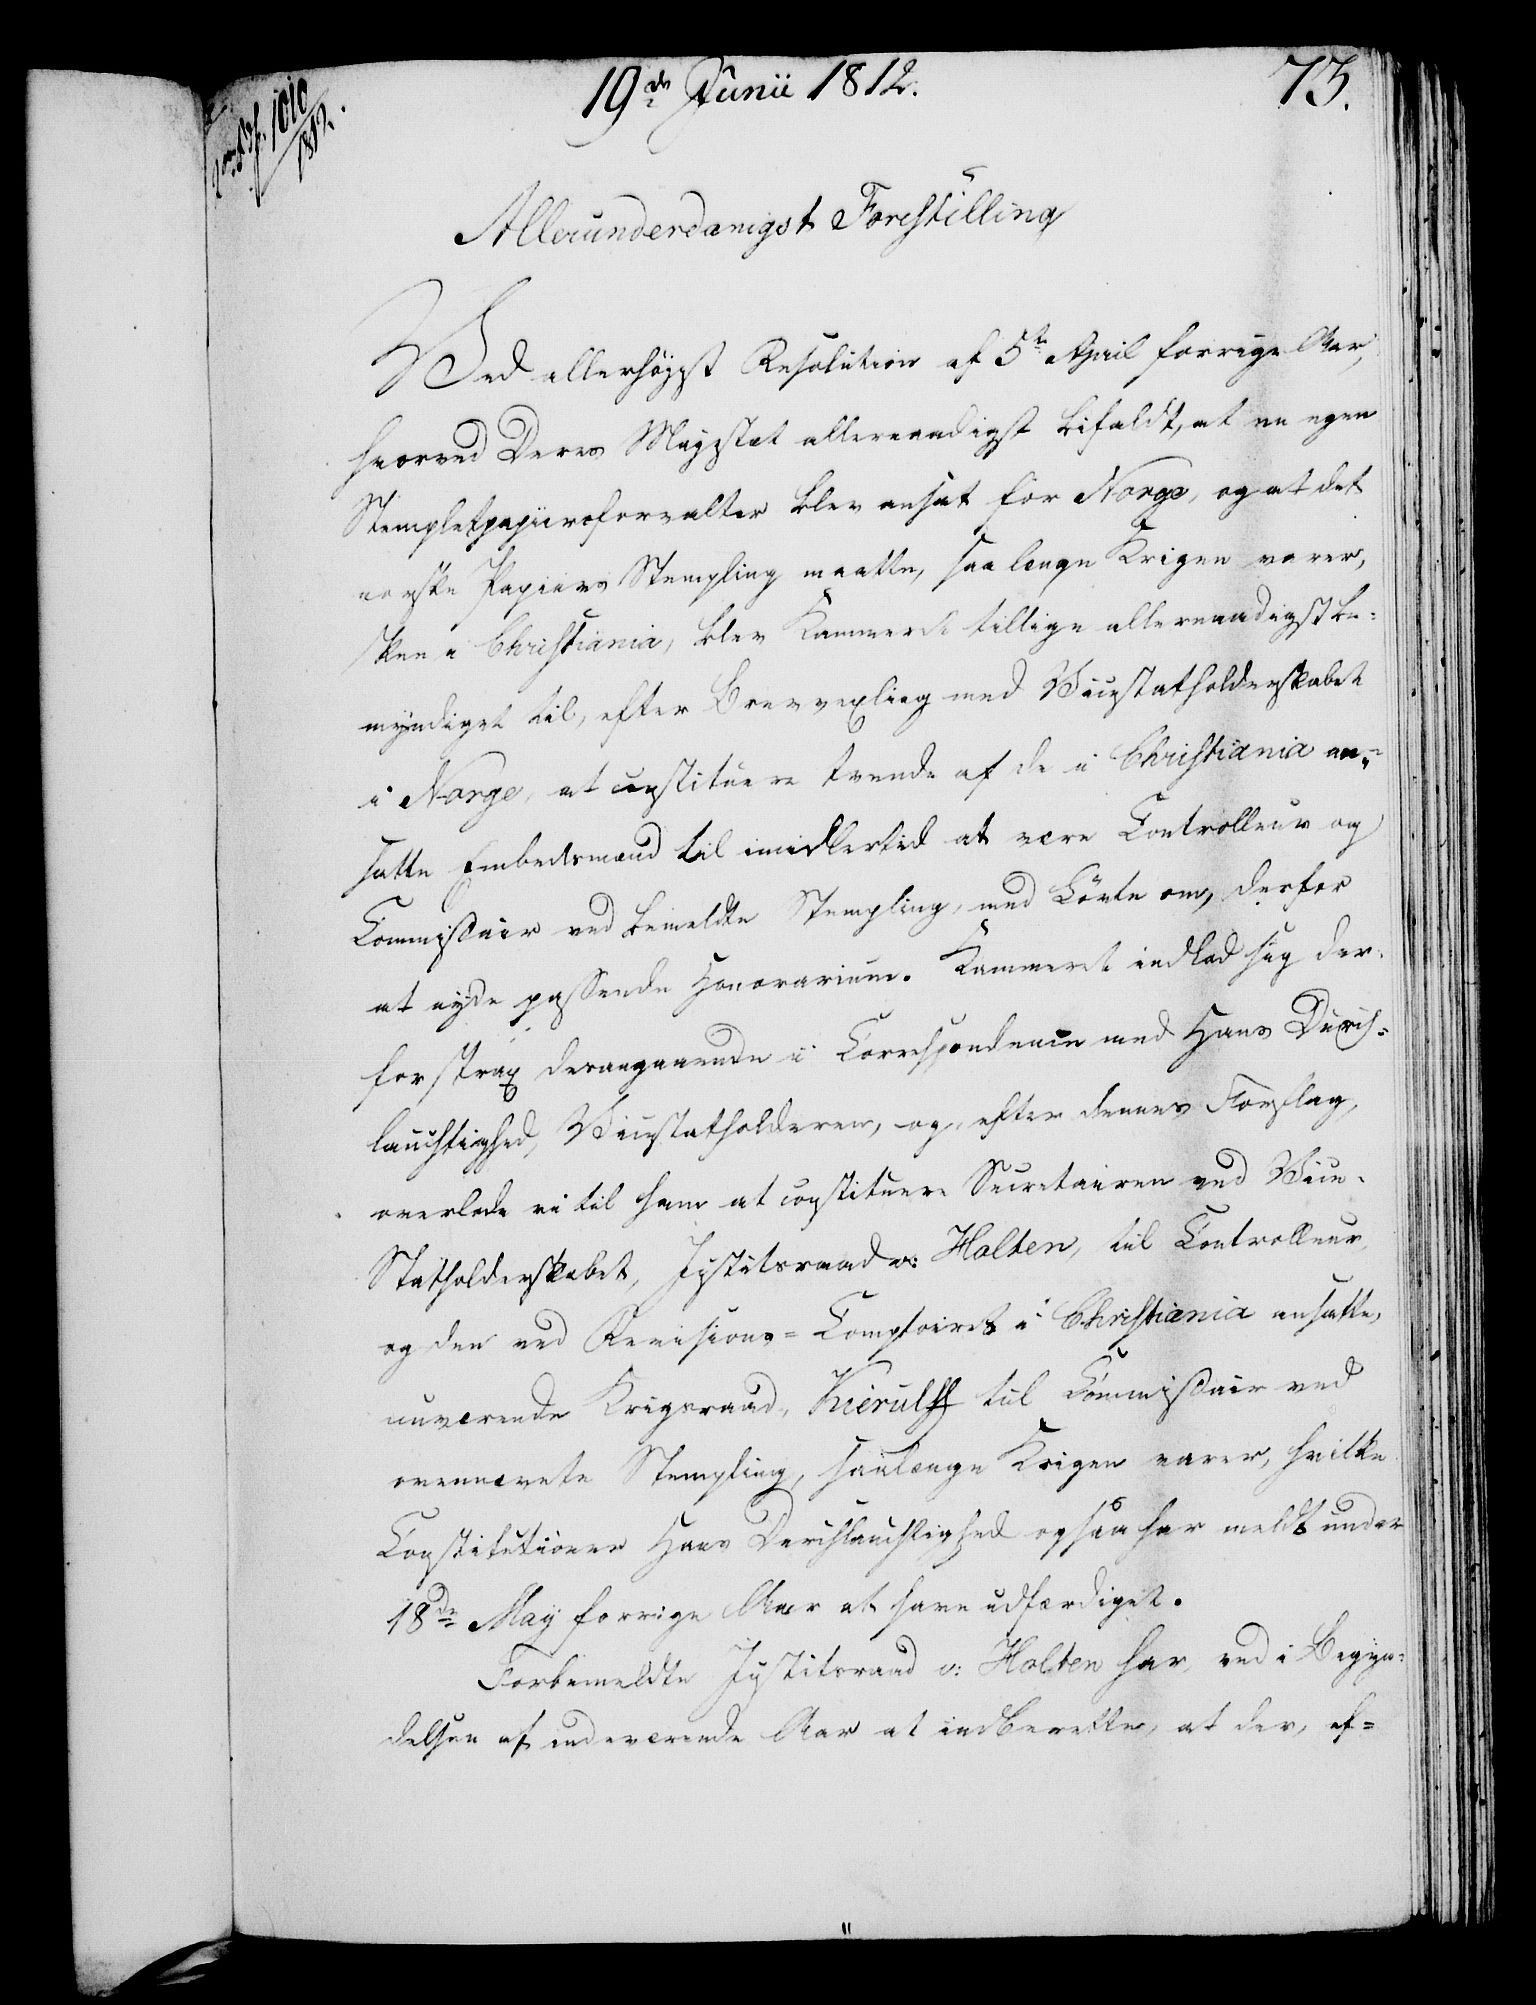 19de Junii 1812.
73.
1010
1812.
Allerunderdanigst Forestilling
Ved allerhøyst Resolution af 5te April forrige Aar,
hvorved Deres Majestæt allernaadigst bifaldt, at en egen
Stempletpapiirsforvalter blev ansat for Norge, og at det
norske Papiirs Stempling maatte, saa længe Krigen varer,
skee i Christiania, blev Kammeret tillige allernaadigst be-
myndiget til, efter Brevvexling med Vicestatholderskabet
i Norge, at constituere tvende af de i Christiania an-
satte Embedsmænd til imidlertid at være Controlleur og
Commissair ved bemeldte Stempling, med Løvte om, derfor
at nyde passende Honorarium. Kammeret indlod sig der-
for strax derangaaende i Correspondence med Hans Durch-
lauchtighed, Vicestatholderen, og, efter dennes Forslag,
overlode vi til ham at constituere Secretairen ved Vice-
Statholderskabet, Justitsraad v: Holten, til Controlleur,
og den ved Revisions-Comptoiret i Christiania ansatte,
nuværende Krigsraad, Kierulff til Commissair ved
ovennævnte Stempling, saalænge Krigen varer, hvilke
Constitutioner Hans Durchlauchtighed ogsaa har meldt under
18de May forrige Aar at have udfærdiget.
Forbemeldte Justitsraad v: Holten har, ved i Begyn-
delsen af indeværende Aar at indberette, at der, ef-